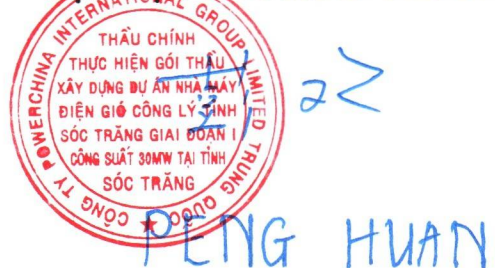 CÔNG TY POWERCHINA INTERNATIONAL GROUP LIMITED TRUNG QUỐC
THẦU CHÍNH
THỰC HIỆN GÓI THẦU
XÂY DỰNG DỰ ÁN NHÀ MÁY
ĐIỆN GIÓ CÔNG LÝ TỈNH
SÓC TRĂNG GIAI ĐOẠN I
CÔNG SUẤT 30MW TẠI TỈNH
SÓC TRĂNG
PENG HUAN